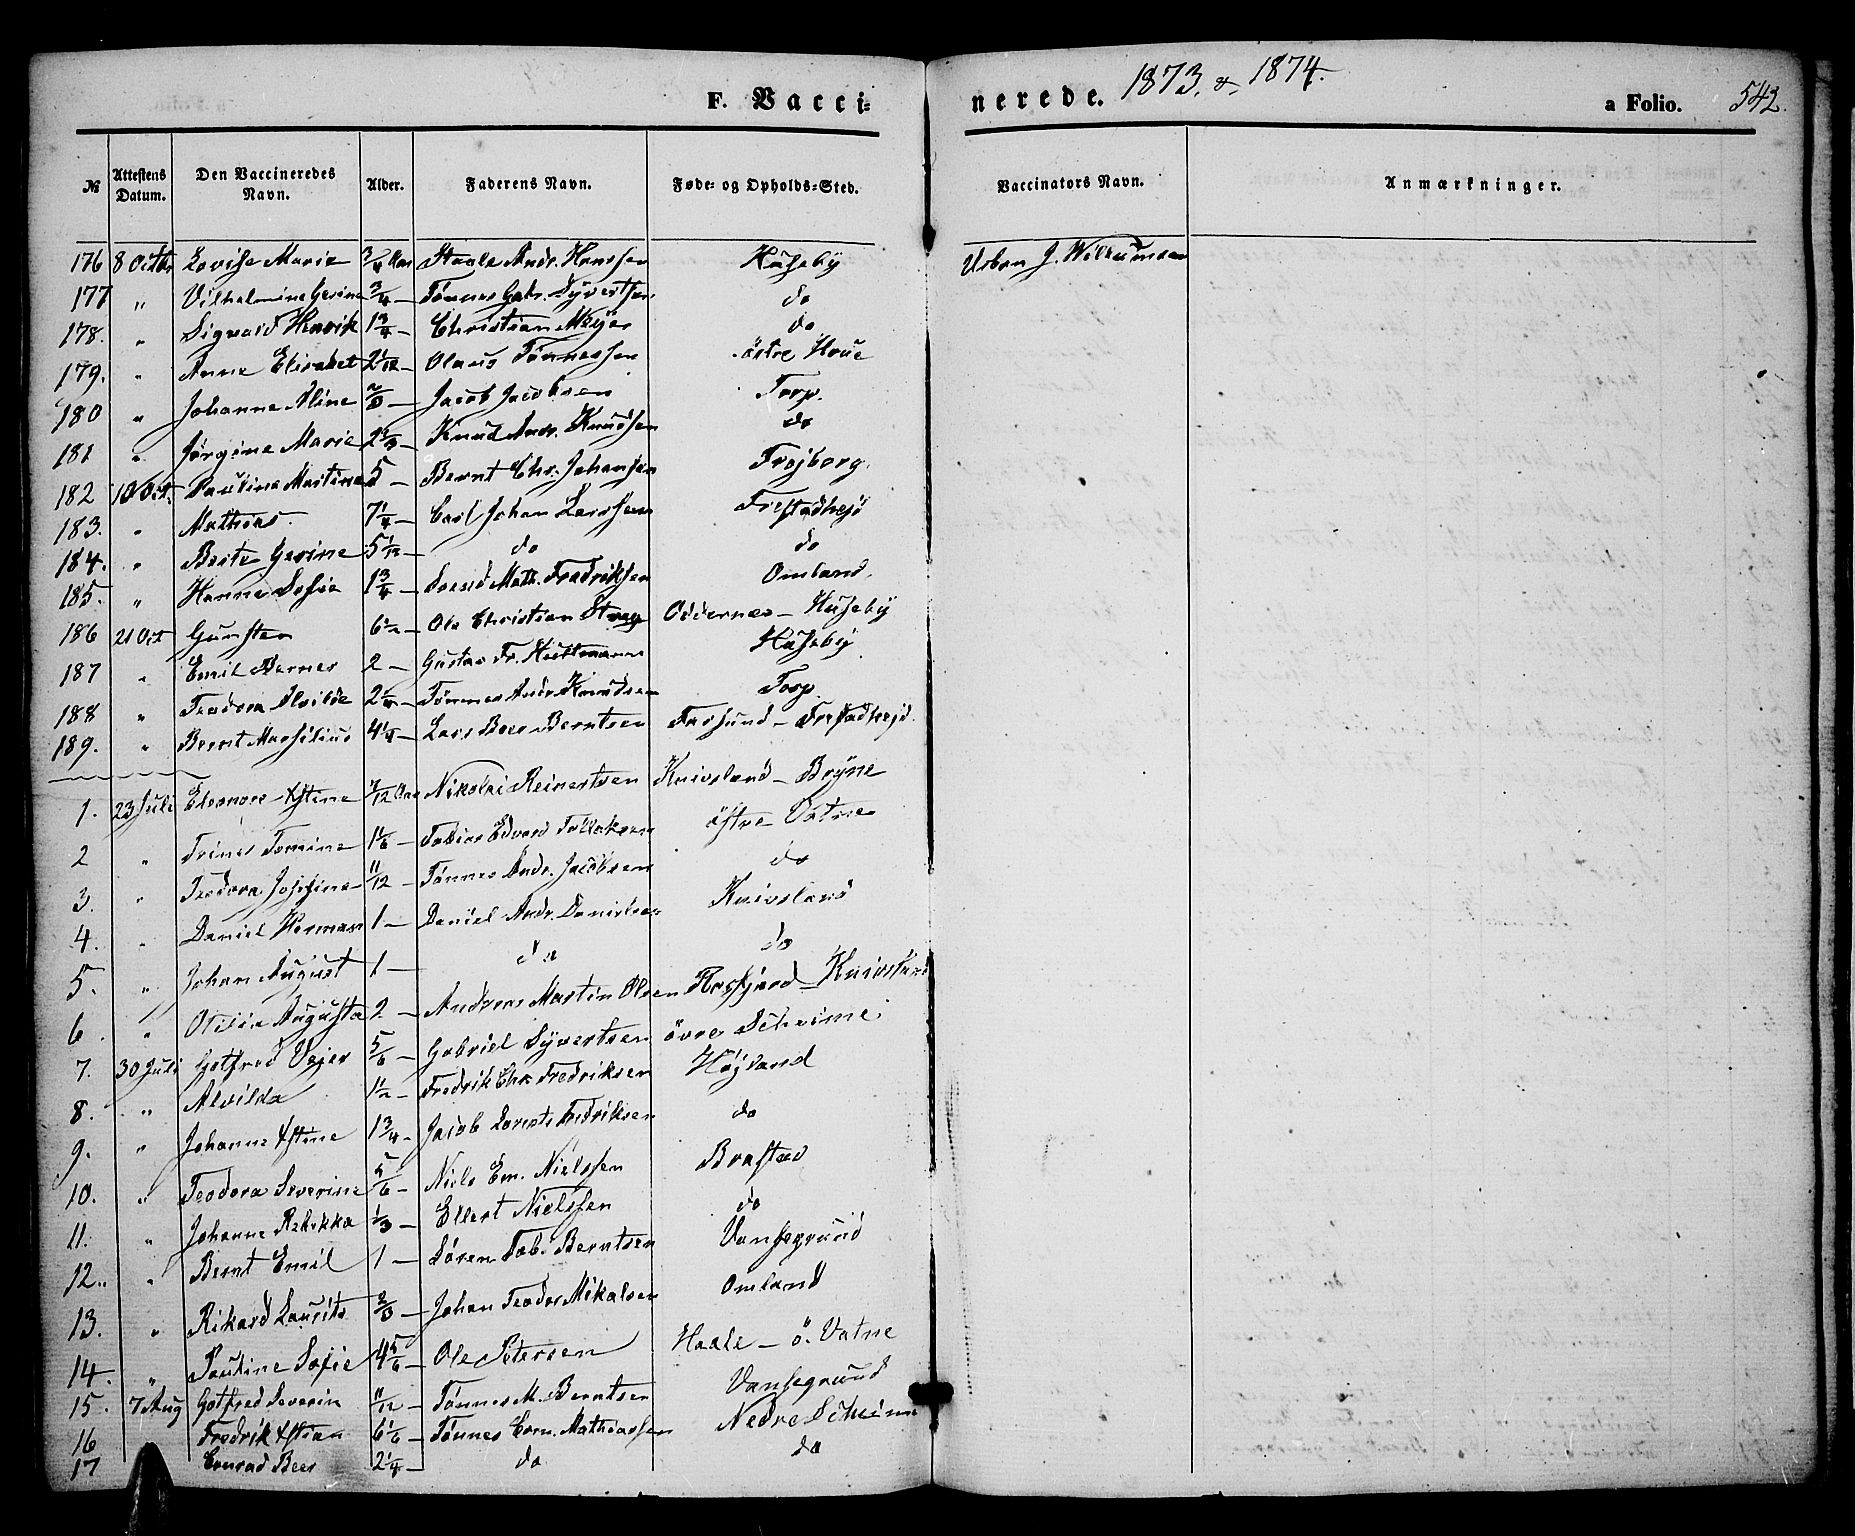 F. Vacci=nerede. 1873. & 1874. a Folio. 542.
№ Attestens Datum. Den Vaccineredes Navn. Alder. Faderens Navn. Føde= og Opholds=Sted. Vaccinators Navn. Anmærkninger.
176 8 Octbr Lovise Marie 3/4 Aar Staale Andr. Hanssen Huseby
177 " Vilhelmine Gesine 3/4 — Tönnes Gabr. Syvertsen do
178. " Sigvald Henrik 1 3/4 — Christian Meyer do
179. " Anne Elisabet 2 1/12 — Olaus Tönnessen östre Houe
180 " Johanne Aline 2/3 — Jacob Jacobsen Torp.
181 " Jørgine Marie 2 1/3 — Knud Andr. Knudsen do
182 10 Oct. Paulina Martine 5 — Bernt Chr. Johansen Trojborg.
183. " Mathias. 7 1/4 — Carl Johan Larssen
184. " Berte Gesine 5 1/12 — do do
185. " Hanne Sofie 1 3/4 — Math. Fredriksen Omland.
186 21 Oct Gunsten 6 1/2 — Ole Christian Oddernes — Huseby
187 " Emil 2 — Gustav Fr. Huseby
188 " Teodora Alvilde 2 1/4 — Tönnes Andr. Knudsen Torp
189. " Bernt 4 1/4 — Lars Beer Berntsen Farsund —
1. 23 Juli Eleonore Xstine 7/12 Aar Nikolai Reinertsen Knivsland — Bryne
2 " Trine Tomine 1 1/6 — Tobias Edvard Tollaksen östre Vatne
3. " Teodora Josefine 11/12 — Tönnes Andr. Jacobsen do
4. " Daniel Herman 1 — Daniel Andr. Danielsen Knivsland
5. " Johan August 1 — do do
6. " Otilia Augusta 2 — Andreas Martin Olsen — Knivsland
7. 30 Juli Gotfred Vejer 5/6 — Gabriel Syvertsen övre Scheime
8. " Alvilda 1 1/2 — Fredrik Chr. Fredriksen Højland
9. " Johanne Xstine 1 3/4 — Jacob Lorents Fredriksen do
10. " Teodora Severine 5/6 — Niels Em. Nielssen Brastad
11. " Johanne Rebekka 1/3 — Ellert Nielssen do
12.. " Bernt Emil 1 — Sören Tob. Berntsen Vansegrund
13. " Rikard Laurits 2/3 — Johan Teodor Mikalsen Omland
14. " Pauline Sofie 4 5/6 — Ole Petersen — ö. Vatne
15. 7 Aug Gotfred Severin 11/12 — Tönnes M. Berntsen Vansegrund
16 Fredrik Xstian 6 1/6 — Tönnes Corn. Mathiassen Nedre Scheime
17 Conrad Beer 2 1/4 — do do